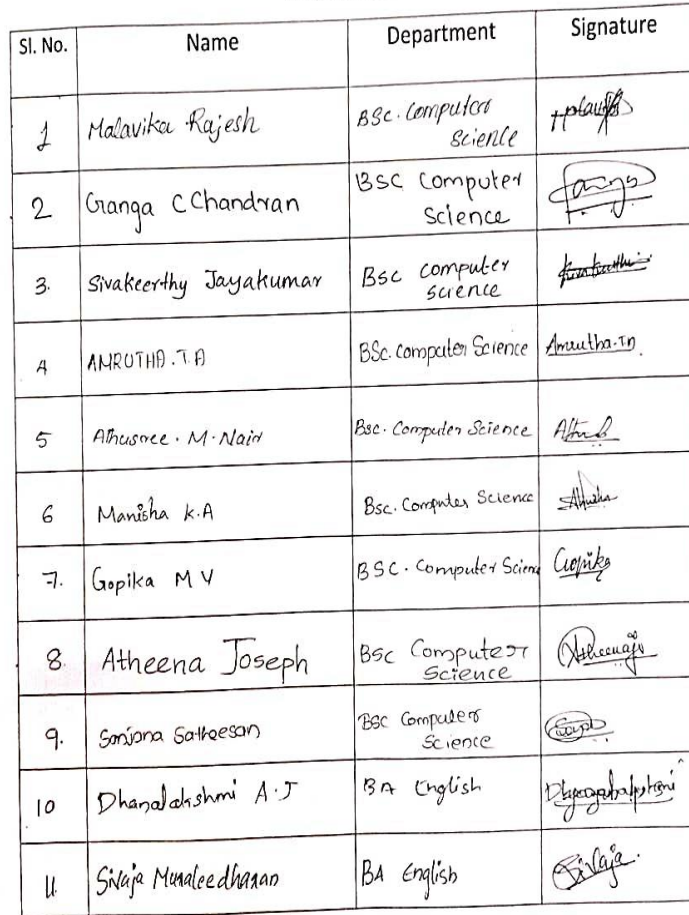 Sl. No. Name Department Signature
1 Malavika Rajesh BSc. Computer
Science
2 Ganga C Chandran BSC Computer
Science
3. Sivakeerthy Jayakumar Bsc computer
science
4 AMRUTHA.T.A BSc. Computer Science Amrutha.TA
5 Athusree. M. Nair Bsc. Computer Science
6 Manisha K.A Bsc. Computer Science
7. Gopika M V BSC. Computer Science Gopika
8. Atheena Joseph BSc Computer
Science
9. Sanjana Satheesan BSC Computer
Science
10 Dhanalakshmi A.J BA English
11. Sivaja Muraleedharan BA English Sivaja.